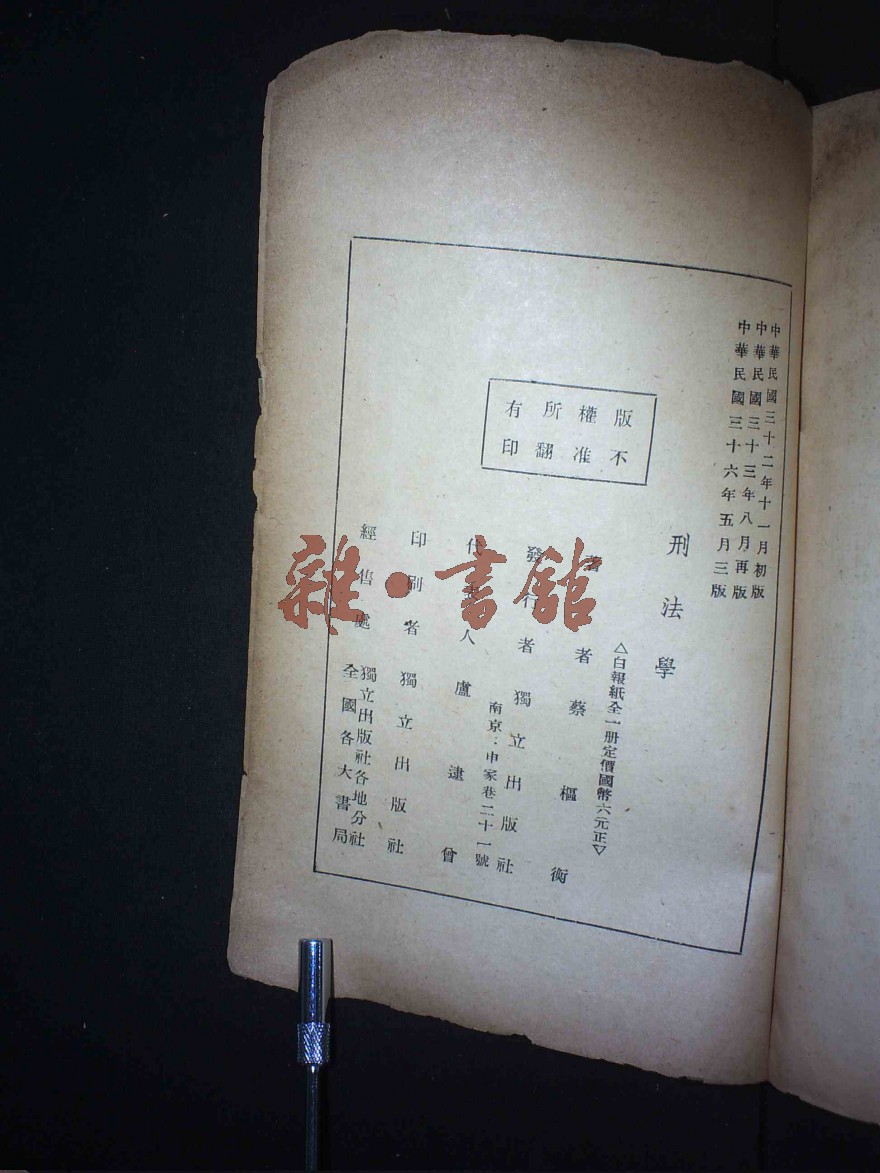 中華民國三十二年十一月初版
中華民國三十三年八月再版
中華民國三十六年五月三版
版權所有
不准翻印
刑法學
△白報紙全一册定價國幣六元正▽
著者 蔡樞衡
發行者 獨立出版社
南京：申家巷二十一號
代表人 盧逮曾
印刷者 獨立出版社
經售處 獨立出版社各地分社
全國各大書局
雜·書館